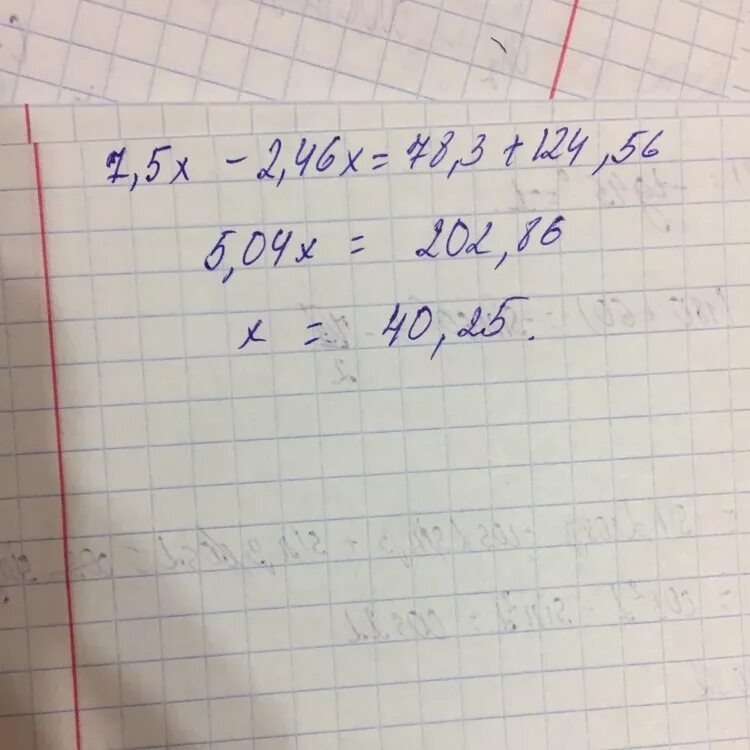 7,5x - 2,46x = 78,3 + 124,56
5,04x = 202,86
x = 40,25.